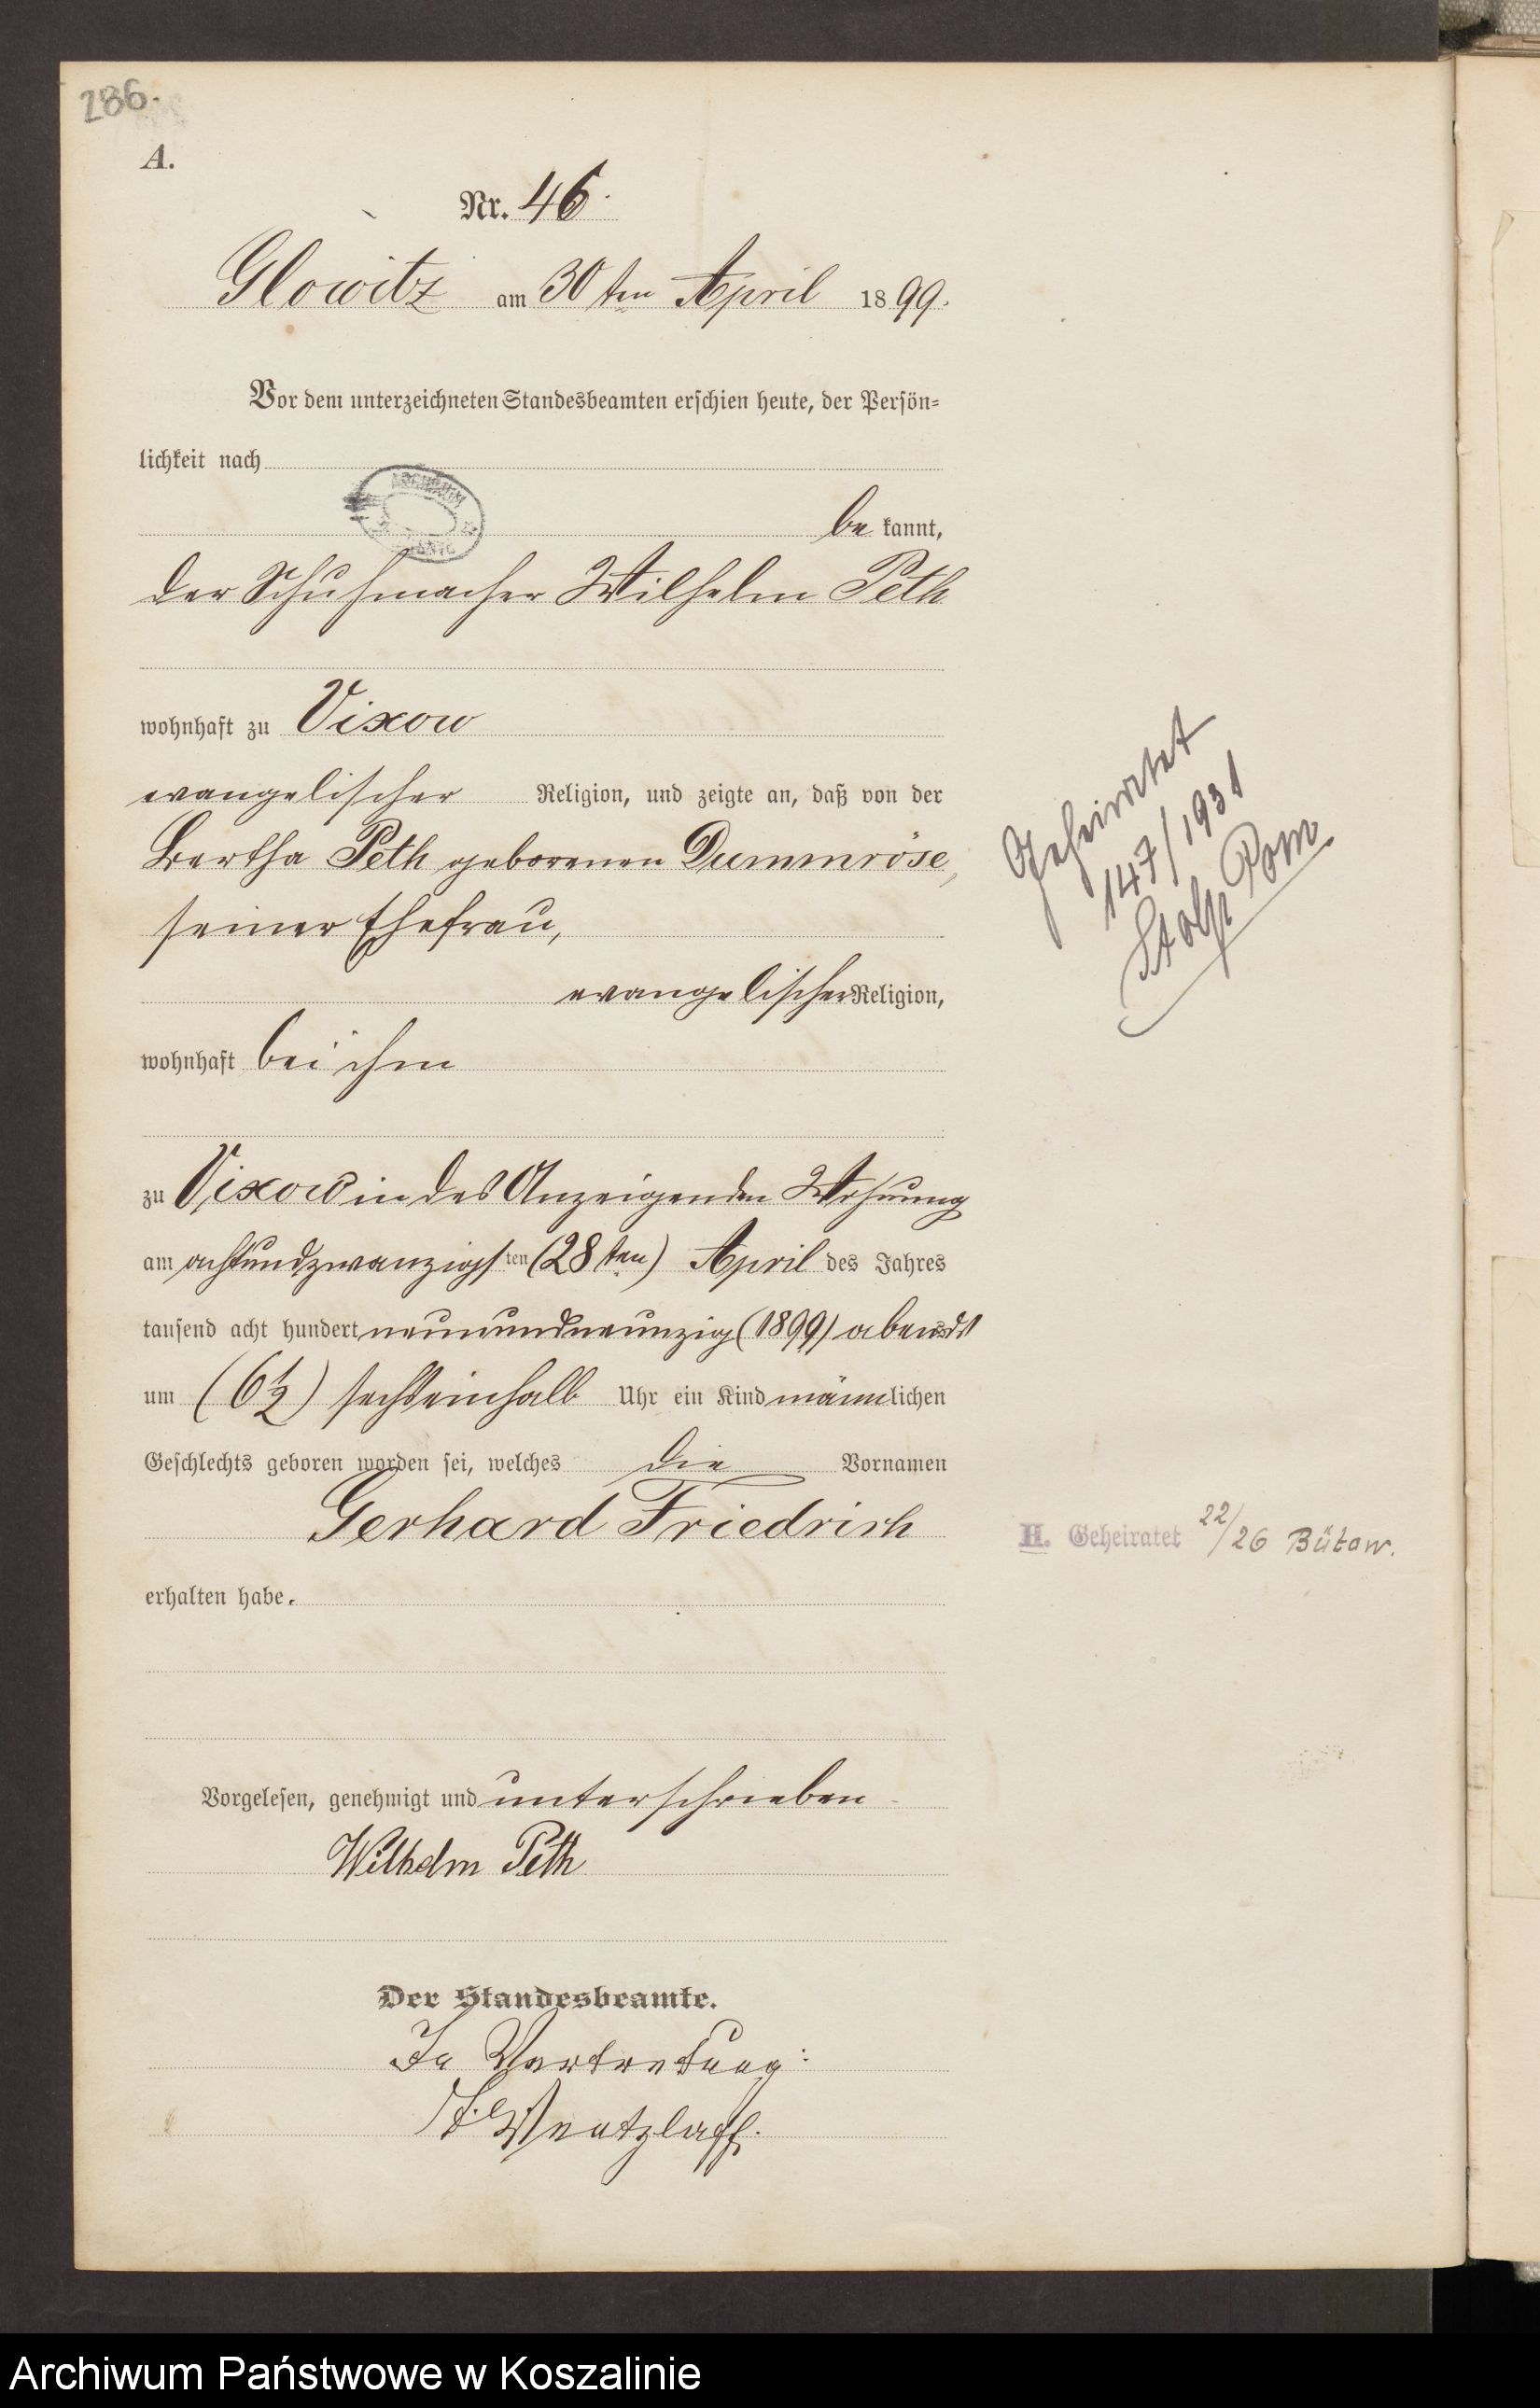 286.
A.
Nr. 46.
Glowitz am 30ten April 1899.
Vor dem unterzeichneten Standesbeamten erschien heute, der Persön-
lichkeit nach
be kannt,
der Schuhmacher Wilhelm Peth
wohnhaft zu Vixow
evangelischer Religion, und zeigte an, daß von der
Bertha Peth geborenen Dummröse,
seiner Ehefrau,
evangelischer Religion,
wohnhaft bei ihm
zu Vixow in des Anzeigenden Wohnung
am achtundzwanzigsten (28ten) April des Jahres
tausend acht hundert neunundneunzig (1899) abends
um (6½) sechseinhalb Uhr ein Kind männlichen
Geschlechts geboren worden sei, welches die Vornamen
Gerhard Friedrich
erhalten habe.
Vorgelesen, genehmigt und unterschrieben
Wilhelm Peth
Der Standesbeamte.
In Vertretung:
Wentzlaff.
Geheiratet
147/1931
Stolp Pom.
H. Geheiratet 22/26 Bütow.
Archiwum Państwowe w Koszalinie